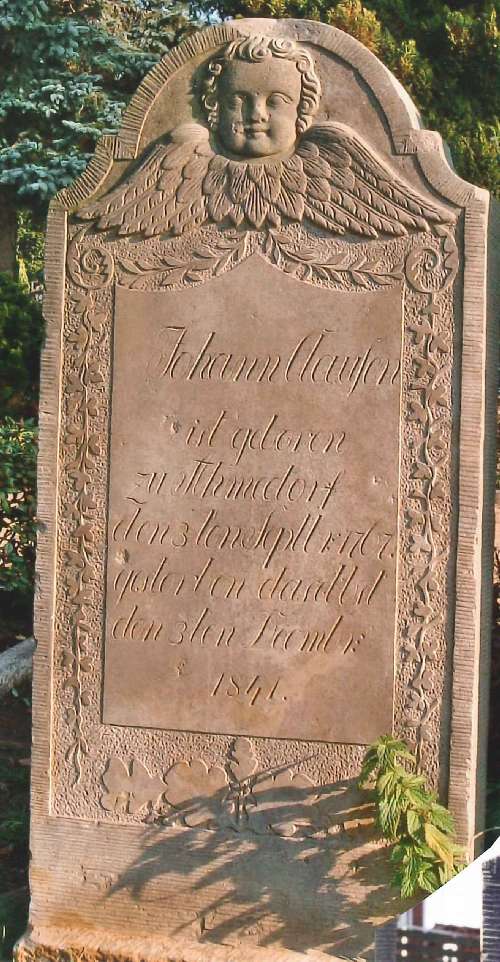 Johann Claussen
ist geboren
zu
den 3 ten Septbr. 1767.
gestorben daselbst
den 3 ten
1841.